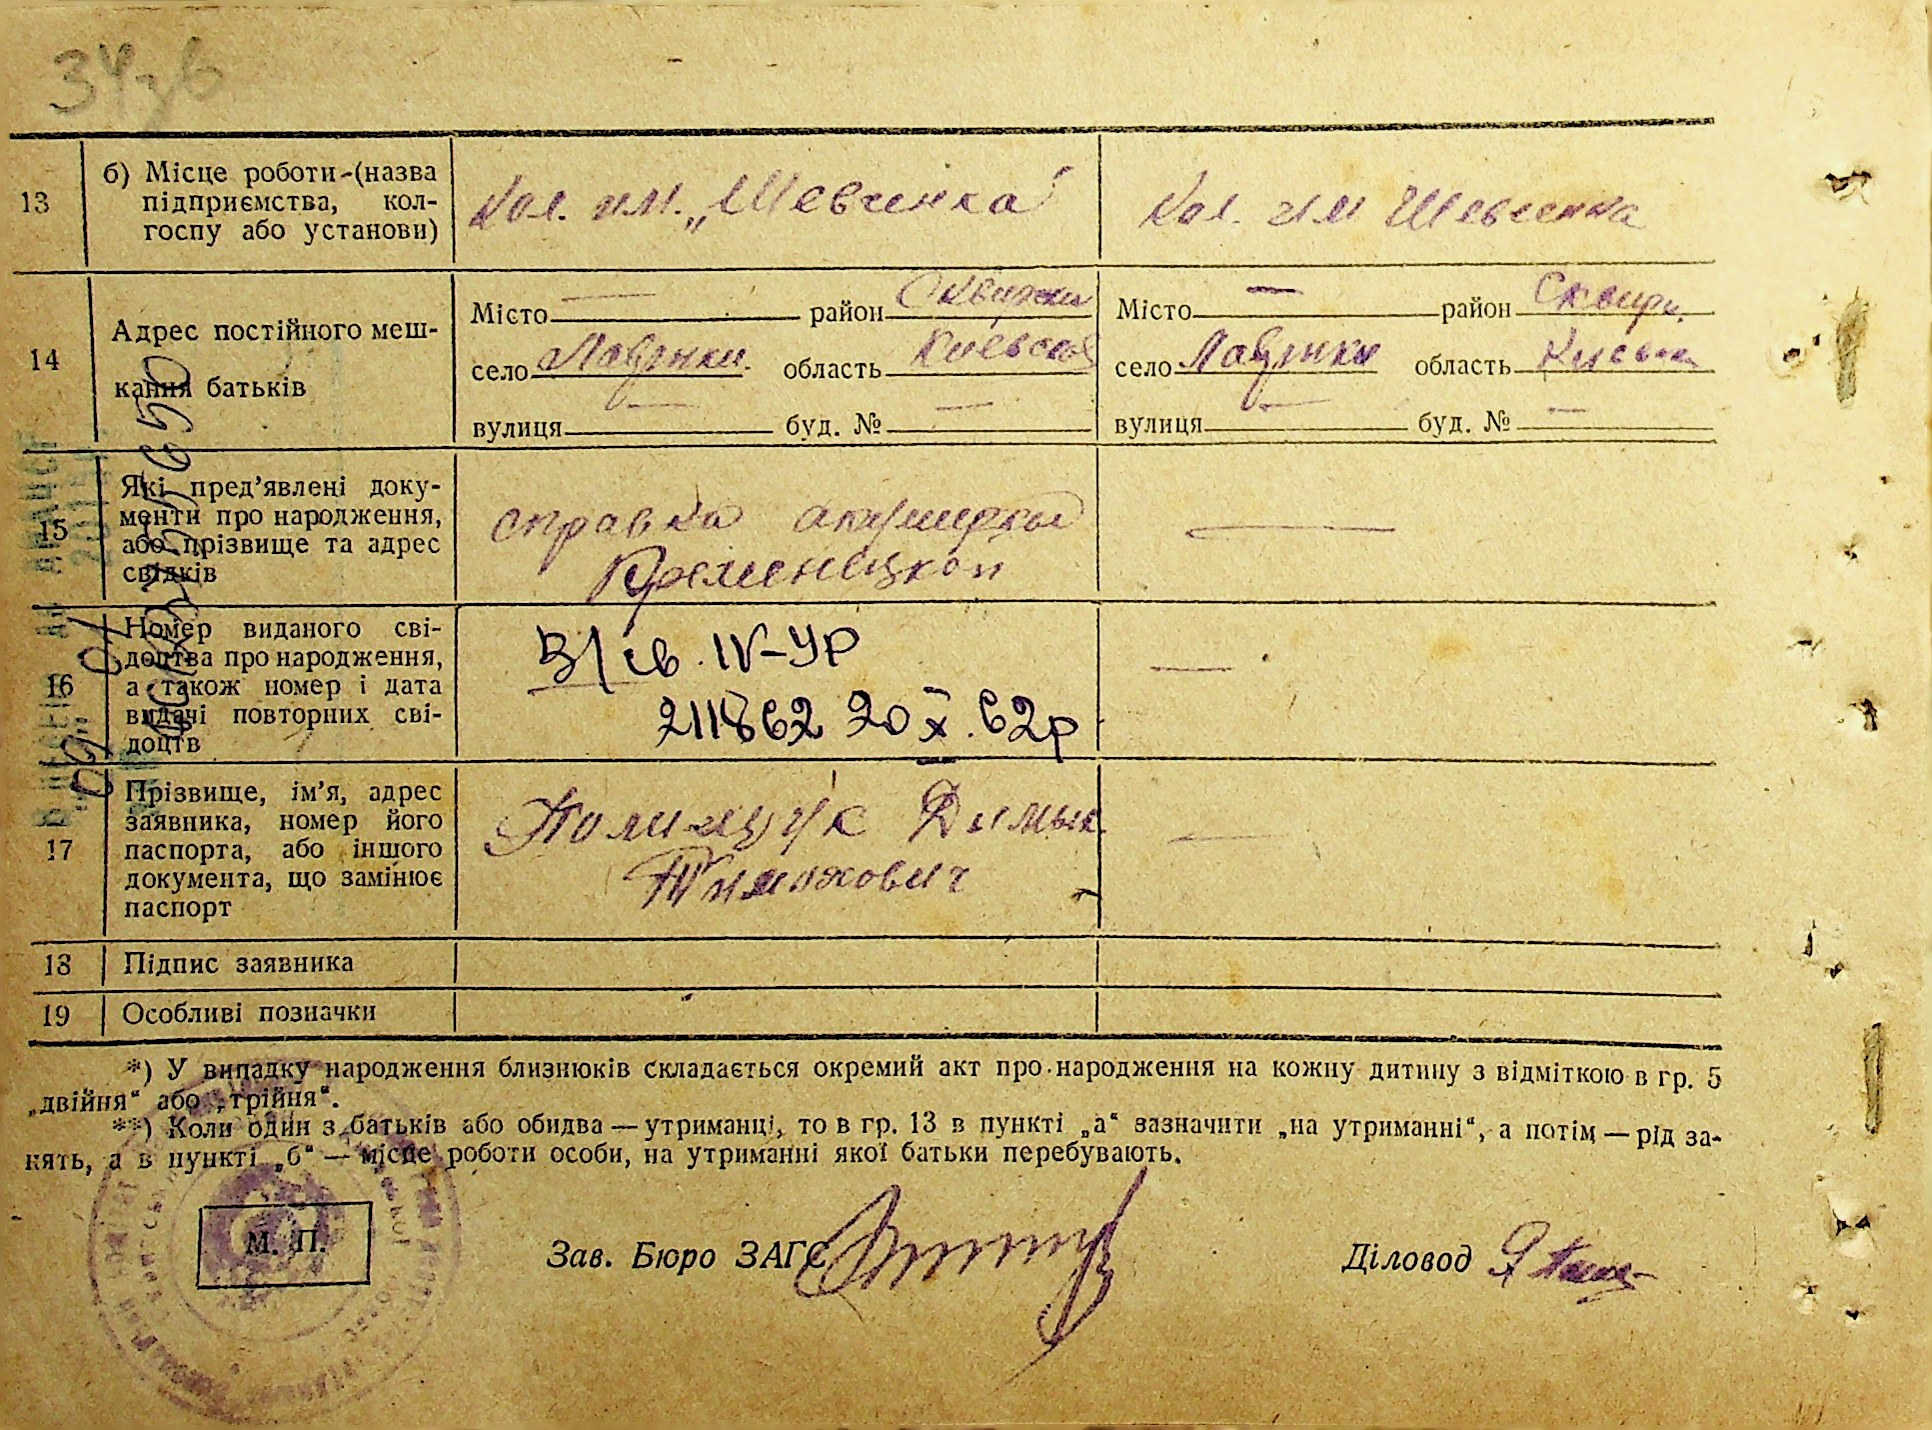 34зв
13
б) Місце роботи (назва
підприємства, кол-
госпу або установи)
Кол. им. „Шевченка"
Кол. им Шевченка
14
Адрес постійного меш-
кання батьків
Місто — район Сквирски
село Лавріки. область Киевская
вулиця — буд. № —
Місто — район Сквир.
село Лавріки область Київська
вулиця — буд. № —
15
Які пред'явлені доку-
менти про народження,
або прізвище та адрес
свідків
справка акушерки
Кременецкой
—
16
Номер виданого сві-
доцтва про народження,
а також номер і дата
видачі повторних сві-
доцтв
В/св. IV-УР
211862 20 X. 62р
—
17
Прізвище, ім'я, адрес
заявника, номер його
паспорта, або іншого
документа, що замінює
паспорт
Полищук Демьян
Тимохович
—
18
Підпис заявника
19
Особливі позначки
*) У випадку народження близнюків складається окремий акт про народження на кожну дитину з відміткою в гр. 5
„двійня" або „трійня".
**) Коли один з батьків або обидва — утриманці, то в гр. 13 в пункті „а" зазначити „на утриманні", а потім — рід за-
нять, а в пункті „б" — місце роботи особи, на утриманні якої батьки перебувають.
М. П.
Зав. Бюро ЗАГС
Діловод